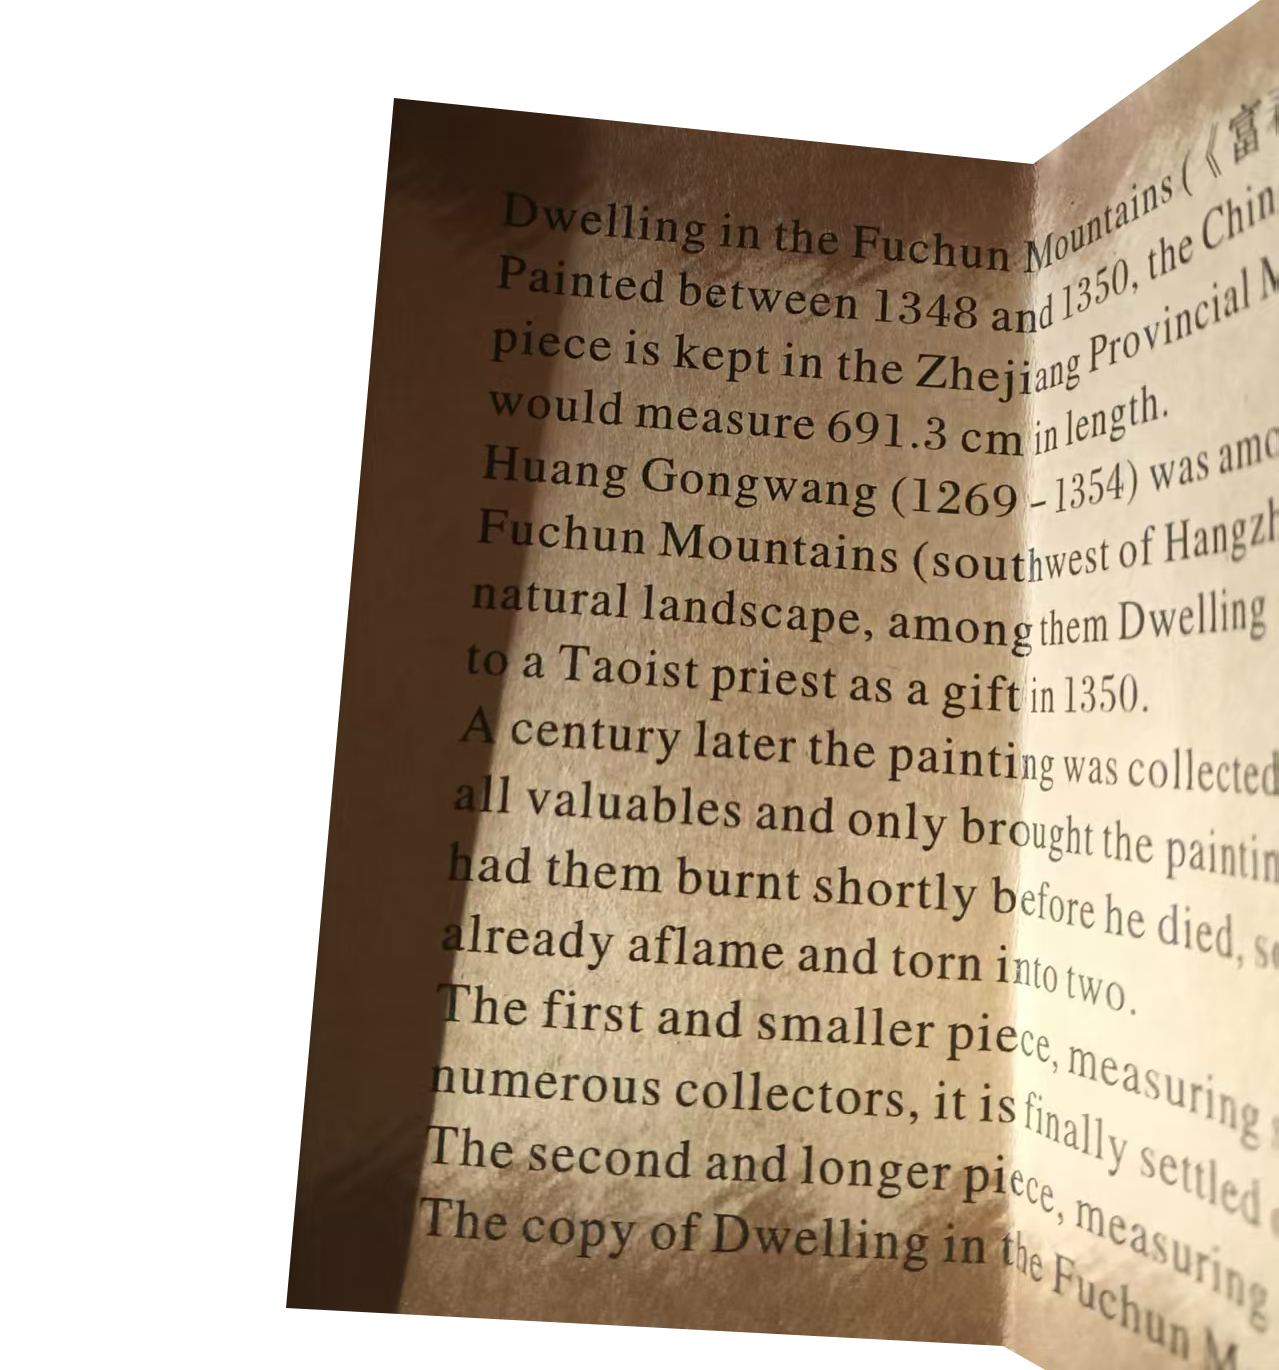 Dwelling in the Fuchun Mountains (《富
Painted between 1348 and 1350, the Chin
piece is kept in the Zhejiang Provincial M
would measure 691.3 cm in length.
Huang Gongwang (1269 - 1354) was amo
Fuchun Mountains (southwest of Hangzh
natural landscape, among them Dwelling
to a Taoist priest as a gift in 1350.
A century later the painting was collected
all valuables and only brought the paintin
had them burnt shortly before he died, so
already aflame and torn into two.
The first and smaller piece, measuring
numerous collectors, it is finally settled
The second and longer piece, measuring
The copy of Dwelling in the Fuchun M